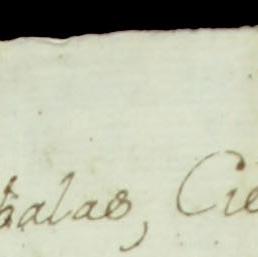 balas, Cie